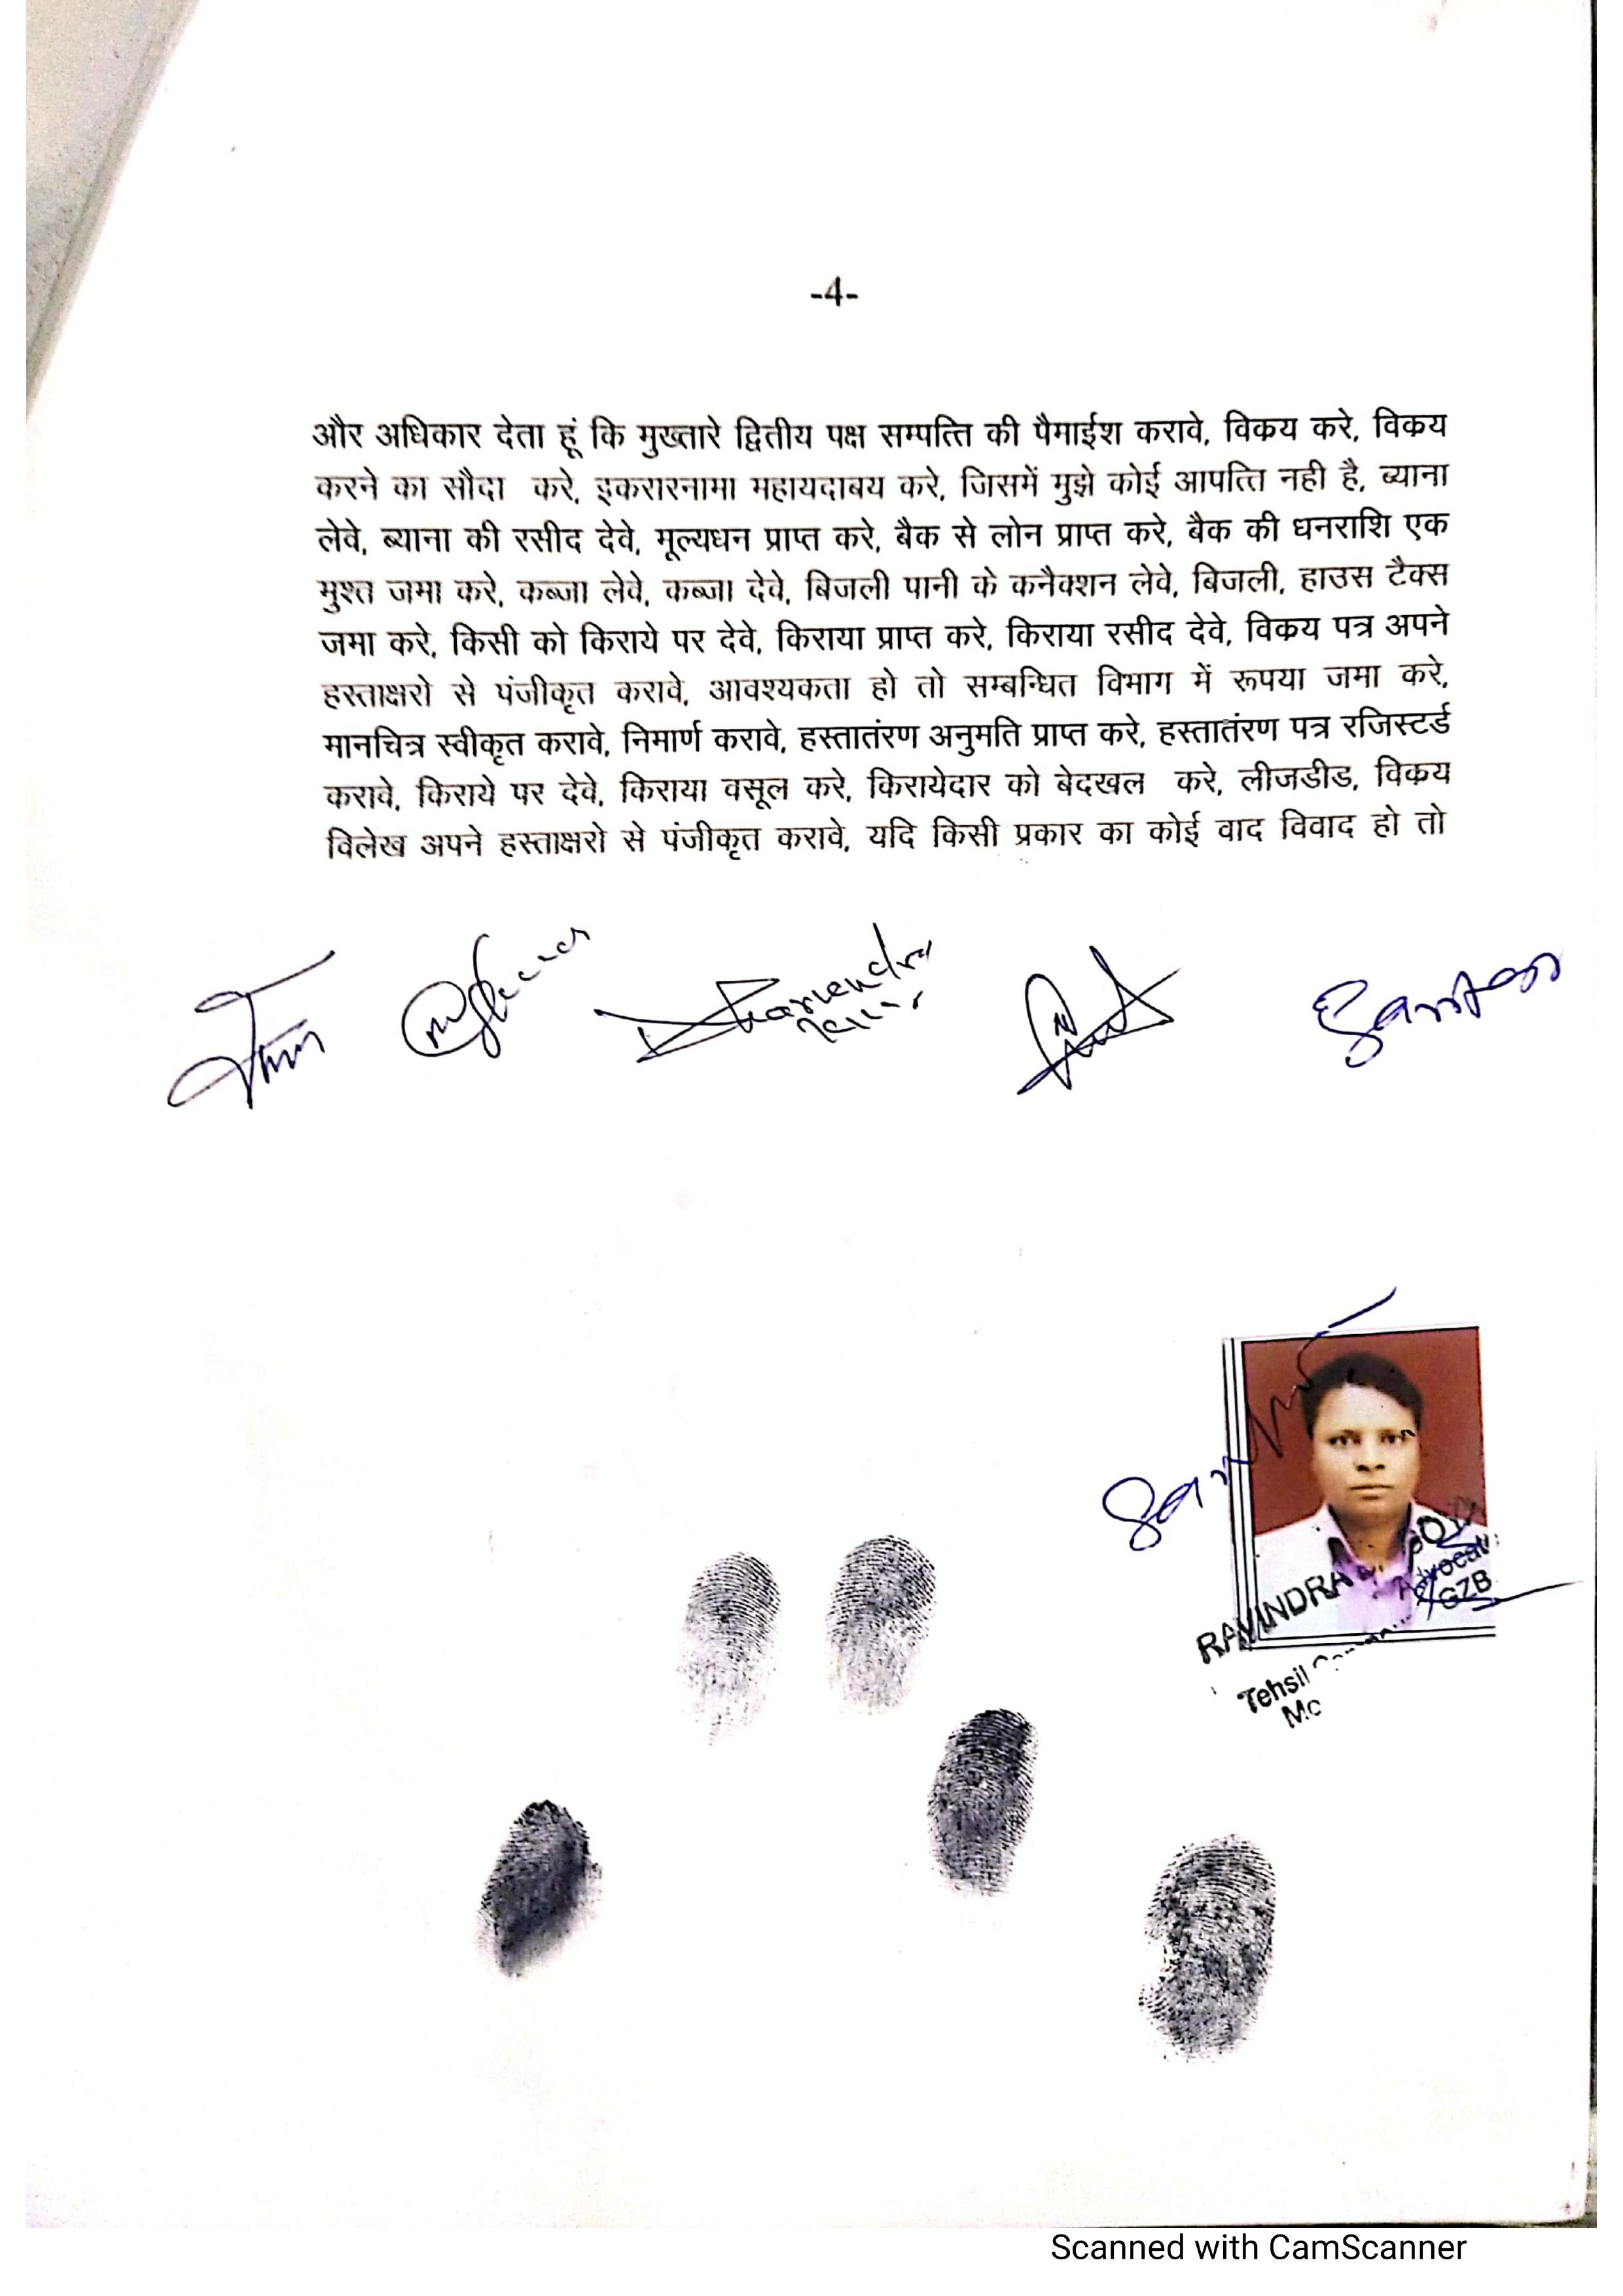 -4-
और अधिकार देता हूं कि मुख्तारे द्वितीय पक्ष सम्पत्ति की पैमाईश करावे, विकय करे, विकय
करने का सौदा करे, इकरारनामा महायदाबय करे, जिसमें मुझे कोई आपत्ति नही है, ब्याना
लेवे, ब्याना की रसीद देवे, मूल्यधन प्राप्त करे, बैक से लोन प्राप्त करे, बैक की धनराशि एक
मुश्त जमा करे, कब्जा लेवे, कब्जा देवे, बिजली पानी के कनैक्शन लेवे, बिजली, हाउस टैक्स
जमा करे, किसी को किराये पर देवे, किराया प्राप्त करे, किराया रसीद देवे, विकय पत्र अपने
हस्ताक्षरो से पंजीकृत करावे, आवश्यकता हो तो सम्बन्धित विभाग में रूपया जमा करे,
मानचित्र स्वीकृत करावे, निमार्ण करावे, हस्तातंरण अनुमति प्राप्त करे, हस्तातंरण पत्र रजिस्टर्ड
करावे, किराये पर देवे, किराया वसूल करे, किरायेदार को बेदखल करे, लीजडीड, विकय
विलेख अपने हस्ताक्षरो से पंजीकृत करावे, यदि किसी प्रकार का कोई वाद विवाद हो तो
RAVINDRA
Advocate
GZB
Tehsil
Scanned with CamScanner